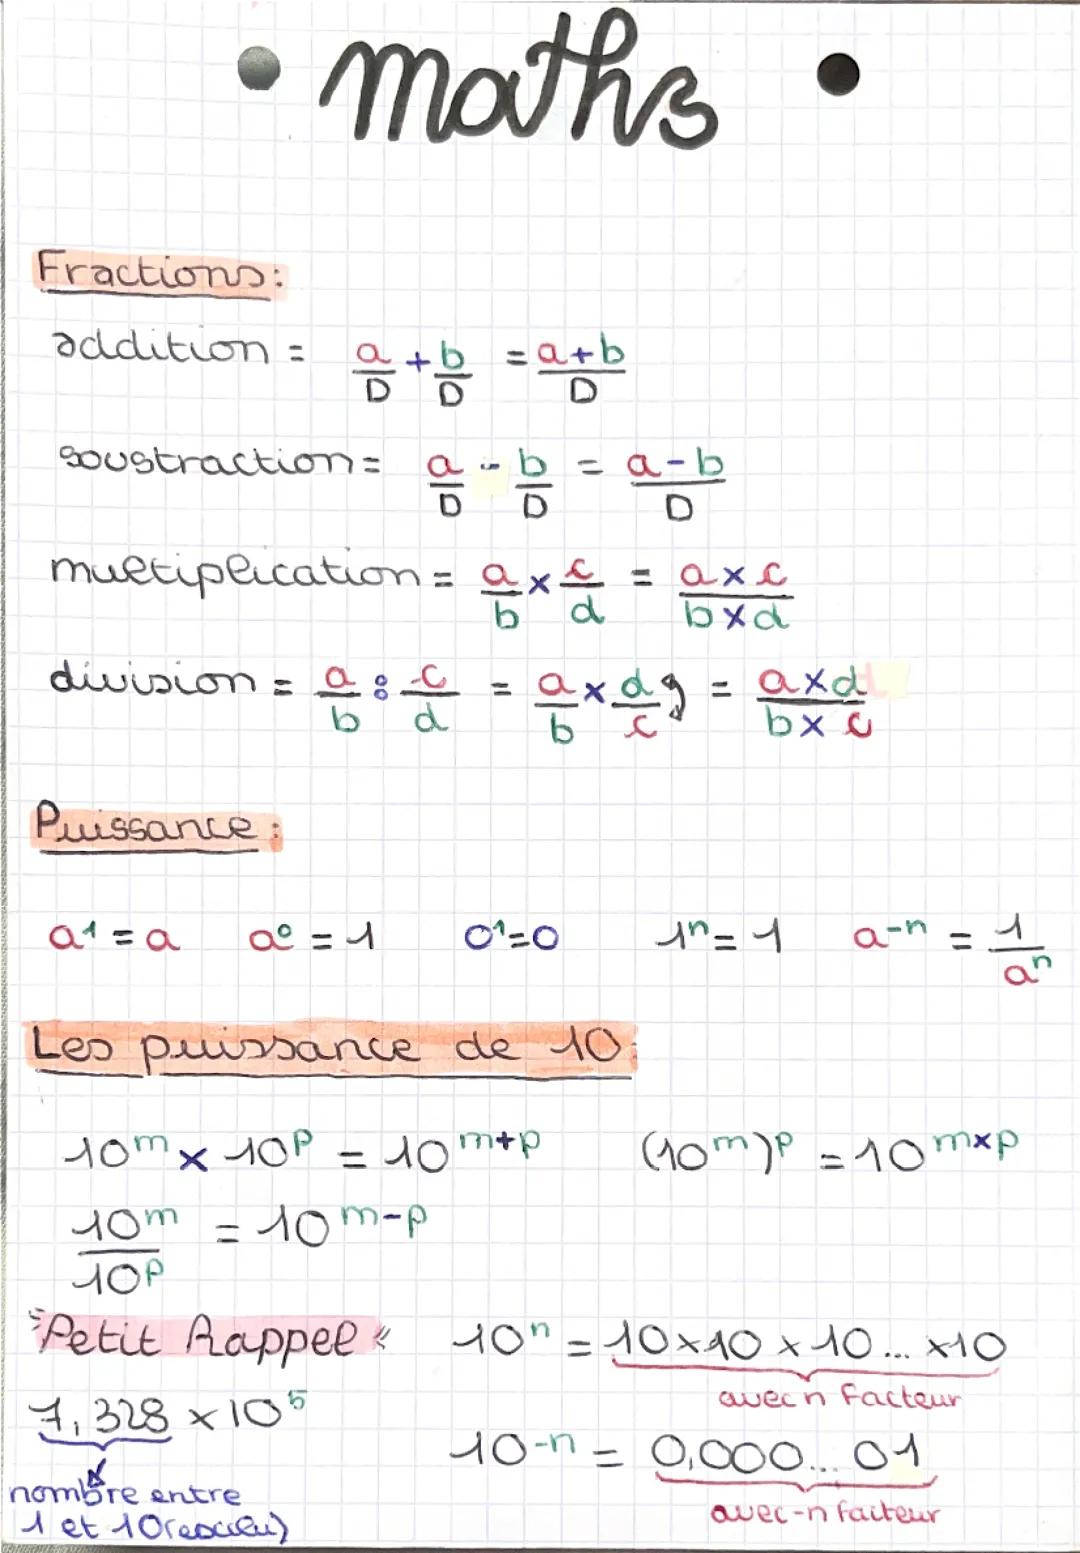 • maths •
Fractions:
addition = a/D + b/D = a+b/D
soustraction = a/D - b/D = a-b/D
multiplication = a/b × c/d = a×c/b×d
division = a/b : c/d = a/b × d/c = a×d/b×c
Puissance :
a¹ = a a⁰ = 1 0¹=0 1ⁿ = 1 a⁻ⁿ = 1/aⁿ
Les puissance de 10:
10ᵐ × 10ᵖ = 10ᵐ⁺ᵖ (10ᵐ)ᵖ = 10ᵐˣᵖ
10ᵐ/10ᵖ = 10ᵐ⁻ᵖ
Petit Rappel 10ⁿ = 10×10×10...×10
avec n facteur
7,328 × 10⁵
10⁻ⁿ = 0,000...01
nombre entre
avec -n facteur
1 et 10(exclu)